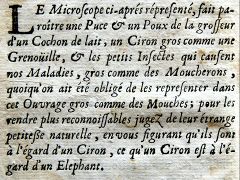 LE Microscope ci-aprés réprésenté, fait pa-
roître une Puce & un Poux de la grosseur
d'un Cochon de lait, un Ciron gros comme une
Grenouille, & les petits Insectes qui causent
nos Maladies, gros comme des Moucherons,
quoiqu'on ait été obligé de les representer dans
cet Ouvrage gros comme des Mouches; pour les
rendre plus reconnoissables jugez de leur étrange
petitesse naturelle, en vous figurant qu'ils sont
à l'égard d'un Ciron, ce qu'un Ciron est à l'é-
gard d'un Elephant.